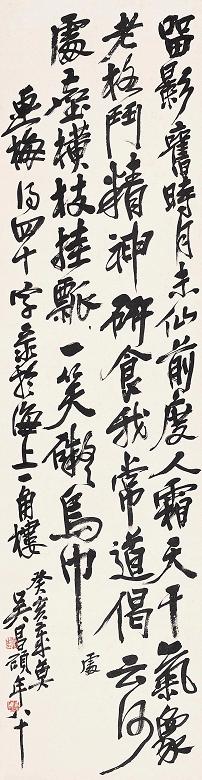 留影舊時月未仙前度人霜天干氣象
老格鬥精神研食我常道偈云何
處臺橫枝挂瓢一笑欹烏巾
畫梅得四十字錄於海上一角樓
癸亥歲莫
吳昌碩年八十
處